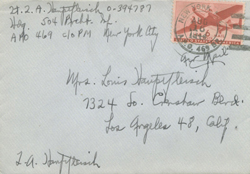 Lt. Z. A. Hauptfleisch O-394787
Hdq. 504 Prcht. Inf.
APO 469 c/o PM New York City
Air Mail
Mrs. Louis Hauptfleisch
7324 So. Crenshaw Blvd.
Los Angeles 43, Calif.
Z. A. Hauptfleisch